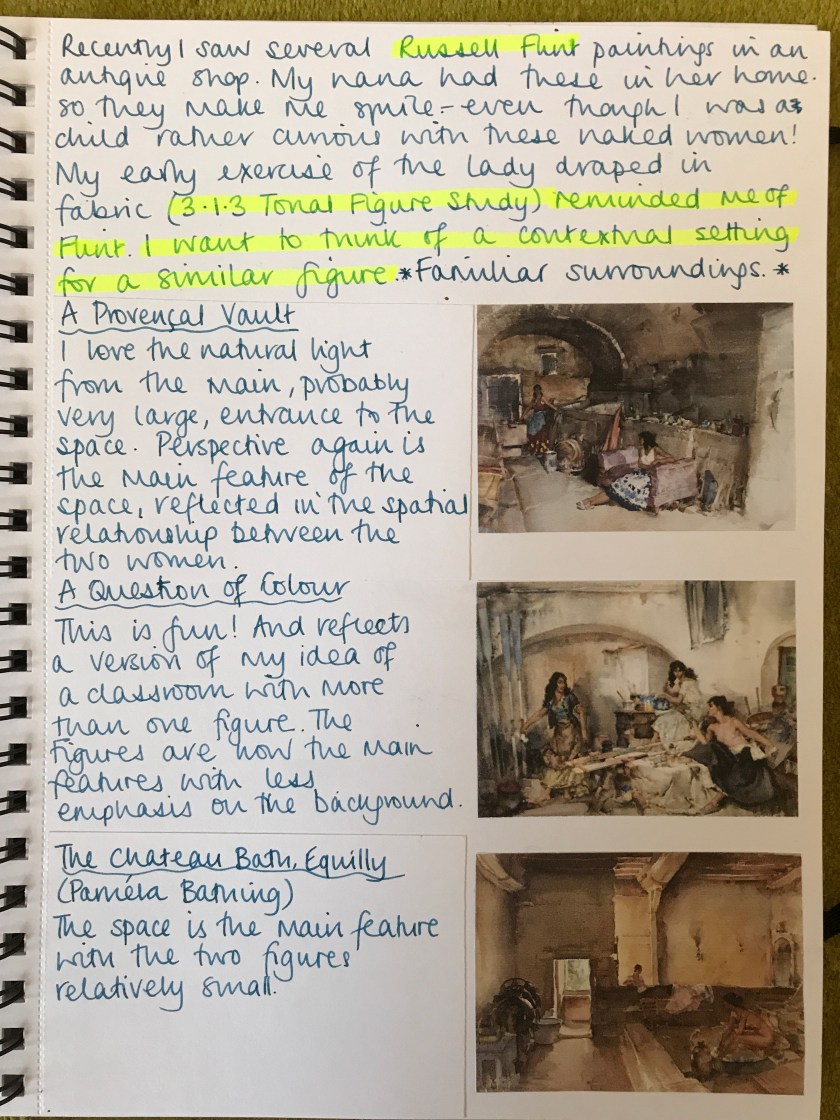 Recently I saw several Russell Flint paintings in an
antique shop. My nana had these in her home.
so they make me smile - even though I was as
child rather curious with these naked women!
My early exercise of the lady draped in
fabric (3.1.3 Tonal Figure Study) reminded me of
Flint. I want to think of a contextual setting
for a similiar figure. *Familiar surroundings. *
A Provençal Vault
I love the natural light
from the main, probably
very large, entrance to the
space. Perspective again is
the main feature of the
space, reflected in the spatial
relationship between the
two women.
A Question of Colour
This is fun! And reflects
a version of my idea of
a classroom with more
than one figure. The
figures are now the main
features with less
emphasis on the background.
The Chateau Bath, Equilly
(Paméla Bathing)
The space is the main feature
with the two figures
relatively small.